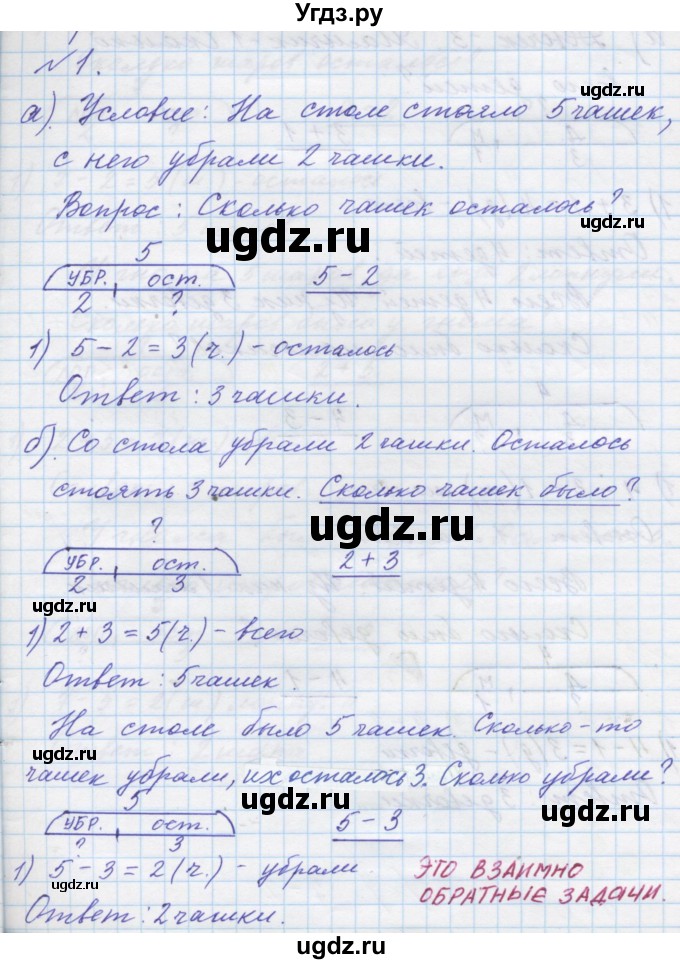 Угдз.ру
№1.
а). Условие: На столе стояло 5 чашек,
с него убрали 2 чашки.
Вопрос: Сколько чашек осталось?
ugdz.ru
5
УБР. ост. 5 - 2
ugdz.ru
2 ?
1) 5 - 2 = 3 (ч.) - осталось
Ответ: 3 чашки.
ugdz.ru
б). Со стола убрали 2 чашки. Осталось
стоять 3 чашки. Сколько чашек было?
?
ugdz.ru
УБР. ост. 2 + 3
2 3
ugdz.ru
1) 2 + 3 = 5 (ч.) - всего
ugdz.ru
Ответ: 5 чашек
На столе было 5 чашек. Сколько-то
ugdz.ru
чашек убрали, их осталось 3. Сколько убрали?
5
ugdz.ru
УБР. ост. 5 - 3
? 3
1) 5 - 3 = 2 (ч.) - убрали
ugdz.ru
ЭТО ВЗАИМНО
ОБРАТНЫЕ ЗАДАЧИ.
Ответ: 2 чашки.
ugdz.ru
ugdz.ru